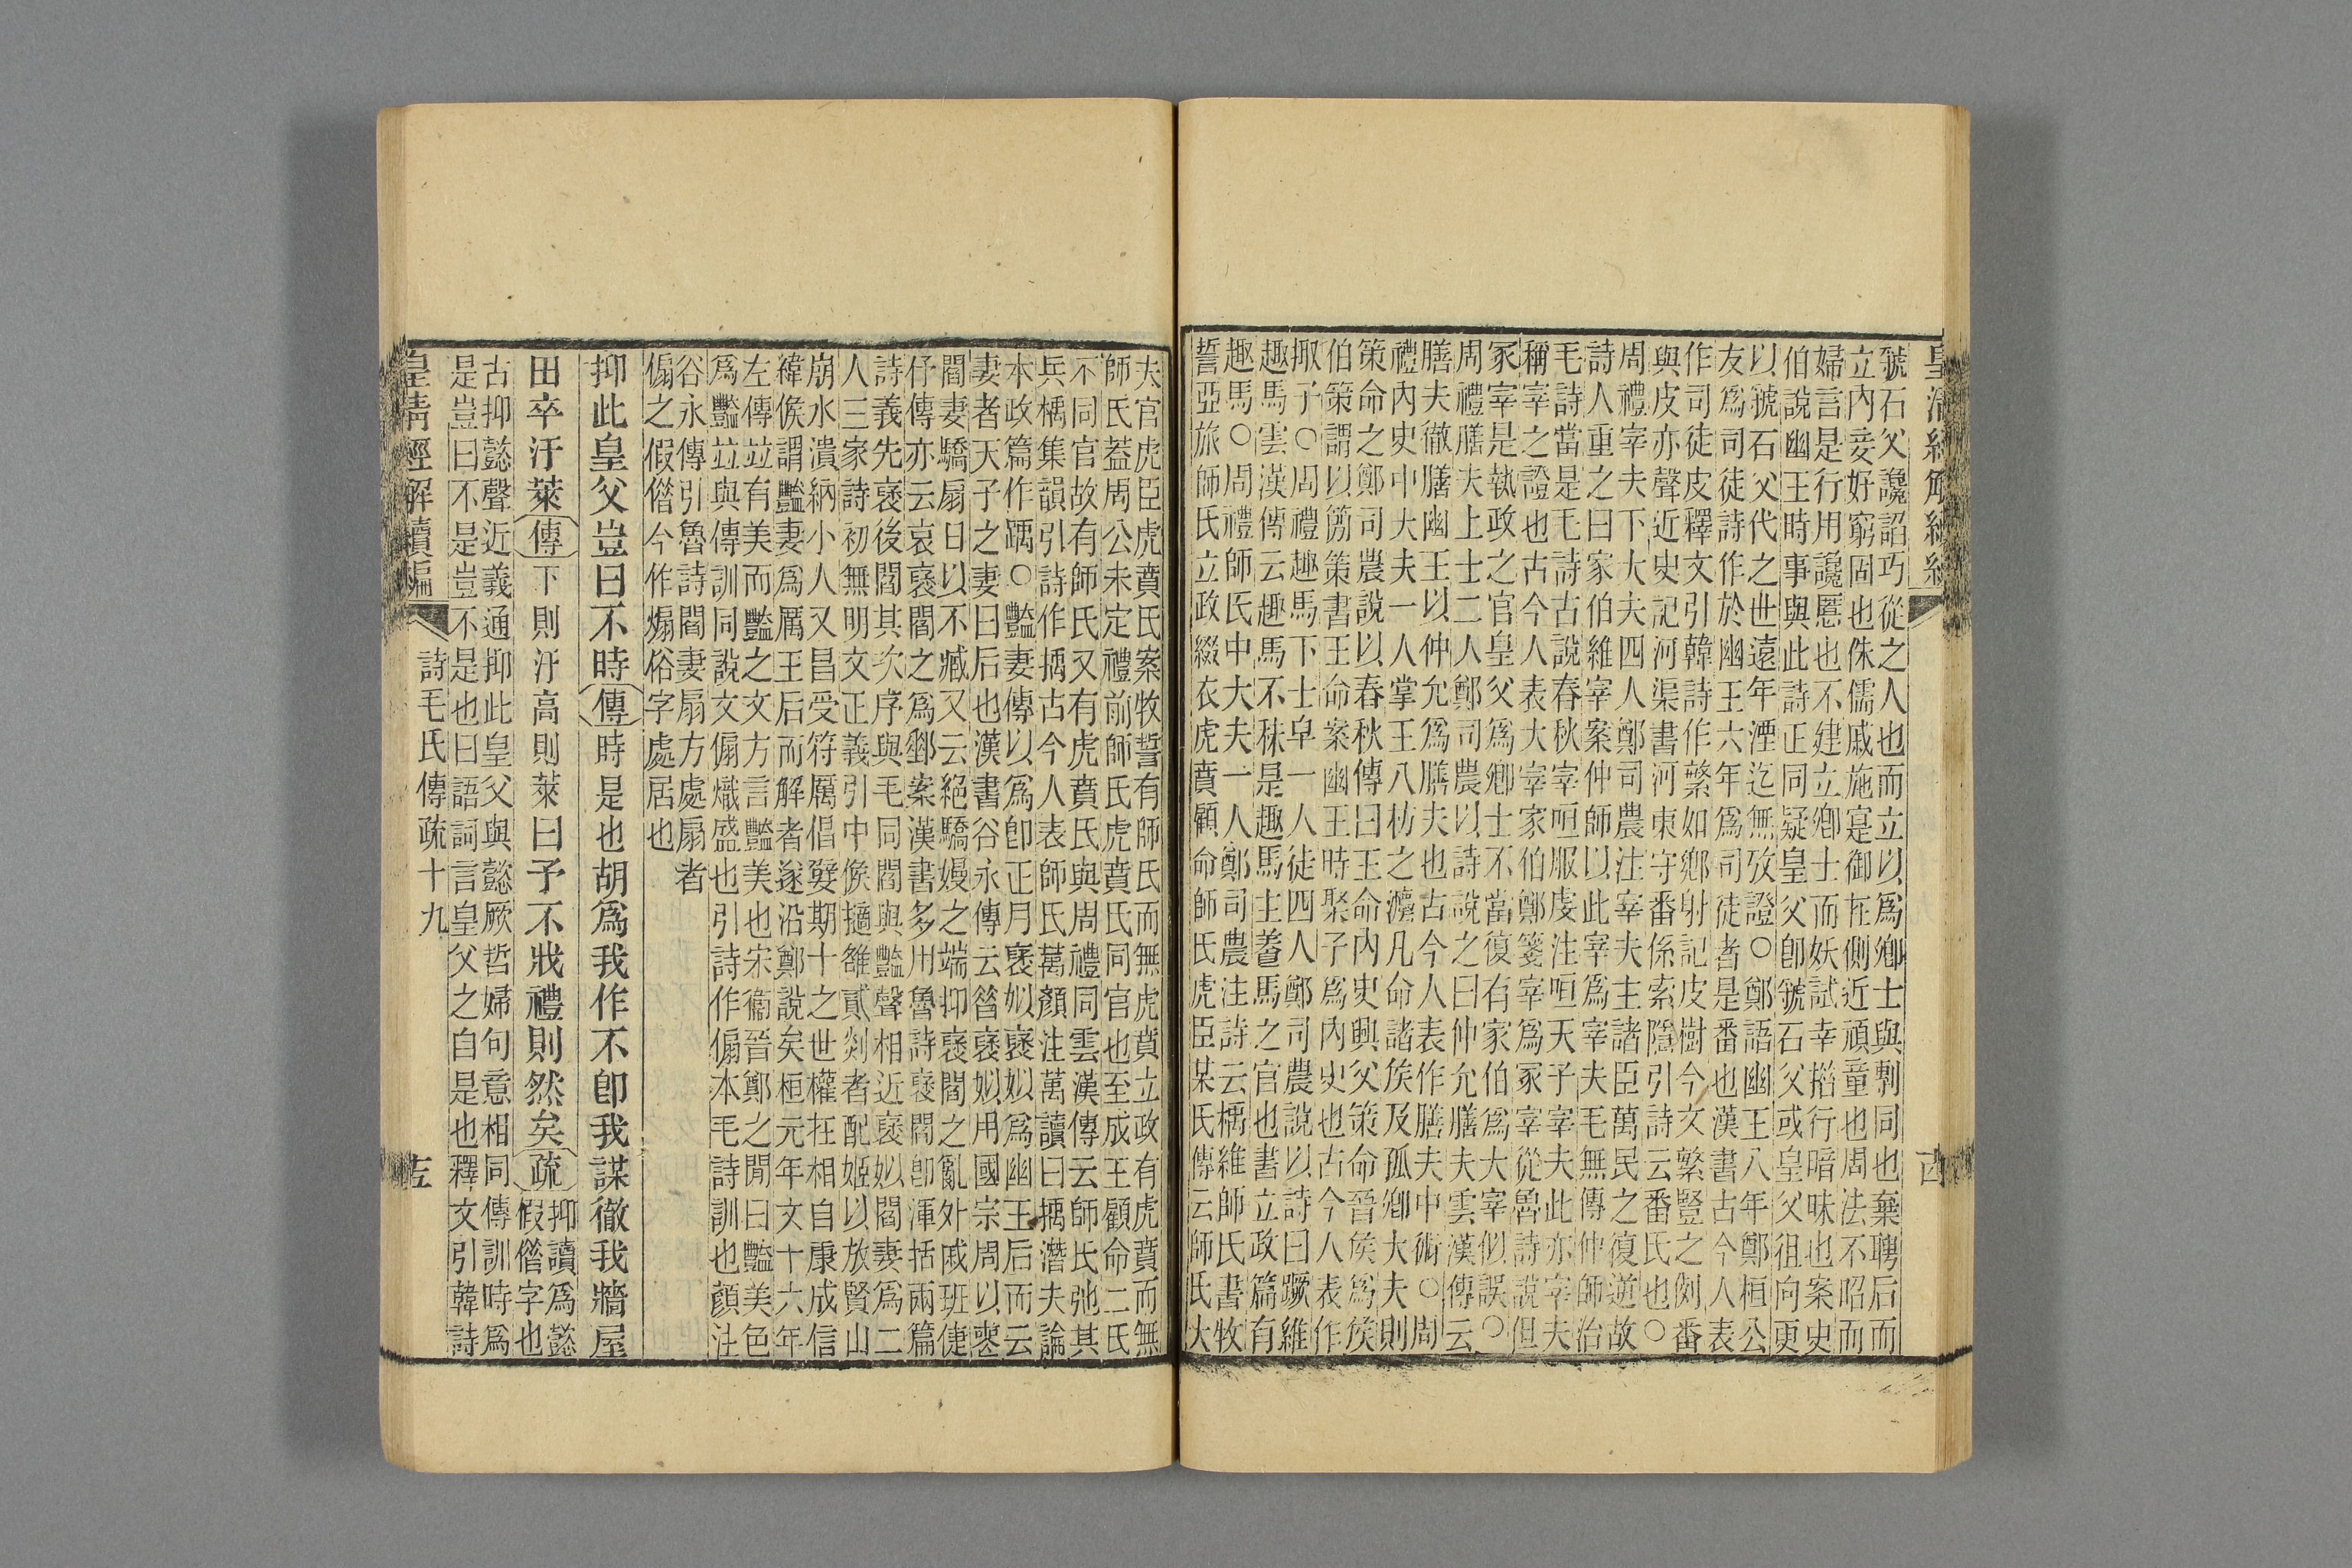 皇清經解續編
虢石父讒諂巧從之人也而立以爲鄉士與剸同也棄聘后而
立內妾好窮固也侏儒戚施寔御在側近頑童也周法不昭而
婦言是行用讒慝也不建立鄉士而妖試幸措行暗昧也案史
伯說幽王時事與此詩正同疑皇父卽虢石父或皇父徂向更
以虢石父代之世遠年湮迄無攷證○鄭語幽王八年鄭桓公
友爲司徒詩作於幽王六年爲司徒者是番也漢書古今人表
作司徒皮釋文引韓詩作繁如鄉射記皮樹今文繁豎之例番
與皮亦聲近史記河渠書河東守番係索隱引詩云番氏也○
周禮宰夫下大夫四人鄭司農注宰夫主諸臣萬民之復逆故
詩人重之曰家伯維宰案仲師以此宰爲宰夫毛無傳仲師治
毛詩當是毛詩古說春秋宰咺服虔注咺天子宰夫此亦宰夫
稱宰之證也古今人表大宰家伯鄭箋宰爲冢宰從魯詩說但
冢宰是執政之官皇父爲鄉士不當復有家伯爲大宰似誤○
周禮膳夫上士二人鄭司農以詩說之曰仲允膳夫雲漢傳云
膳夫徹膳幽王以仲允爲膳夫也古今人表作膳夫中術○周
禮內史中大夫一人掌王八枋之灋凡命諸侯及孤鄉大夫則
策命之鄭司農說以春秋傳曰王命內史興父策命晉侯爲侯
伯策謂以簡策書王命案幽王時聚子爲內史也古今人表作
掫子○周禮趣馬下士皁一人徒四人鄭司農說以詩曰蹶維
趣馬雲漢傳云趣馬不秣是趣馬主養馬之官也書立政篇有
趣馬○周禮師氏中大夫一人鄭司農注詩云楀維師氏書牧
誓亞旅師氏立政綴衣虎賁顧命師氏虎臣某氏傳云師氏大
夫官虎臣虎賁氏案牧誓有師氏而無虎賁立政有虎賁而無
師氏葢周公未定禮前師氏虎賁氏同官也至成王顧命二氏
不同官故有師氏又有虎賁氏與周禮同雲漢傳云師氏弛其
兵楀集韻引詩作摀古今人表師氏萬顏注萬讀曰摀潛夫論
本政篇作踽○豔妻傳以爲卽正月褒姒褒姒爲幽王后而云
妻者天子之妻曰后也漢書谷永傳云昝褒姒用國宗周以喪
閻妻驕扇日以不臧又云絕驕嫚之端抑褒閻之亂外戚班倢
伃傳亦云哀褒閻之爲郵案漢書多用魯詩褒閻卽渾括兩篇
詩義先褒後閻其次序與毛同閻與豔聲相近褒姒閻妻爲二
人三家詩初無明文正義引中候擿雒貳剡者配姬以放賢山
崩水潰納小人又昌受符厲倡嬖期十之世權在相自康成信
禕候謂豔妻爲厲王后而解者遂沿鄭說矣桓元年文十六年
左傳竝有美而豔之文方言豔美也宋衞晉鄭之閒曰豔美色
爲豔竝與傳訓同說文傓熾盛也引詩作傓本毛詩訓也顏注
谷永傳引魯詩閻妻扇方處扇者
傓之假僭今作煽俗字處居也
抑此皇父豈曰不時傳時是也胡爲我作不卽我謀徹我牆屋
田卒汙萊傳下則汙高則萊曰予不戕禮則然矣疏抑讀爲懿
假僭字也
古抑懿聲近義通抑此皇父與懿厥哲婦句意相同傳訓時爲
是豈曰不是豈不是也曰語詞言皇父之自是也釋文引韓詩
皇清經解續編 詩毛氏傳疏十九